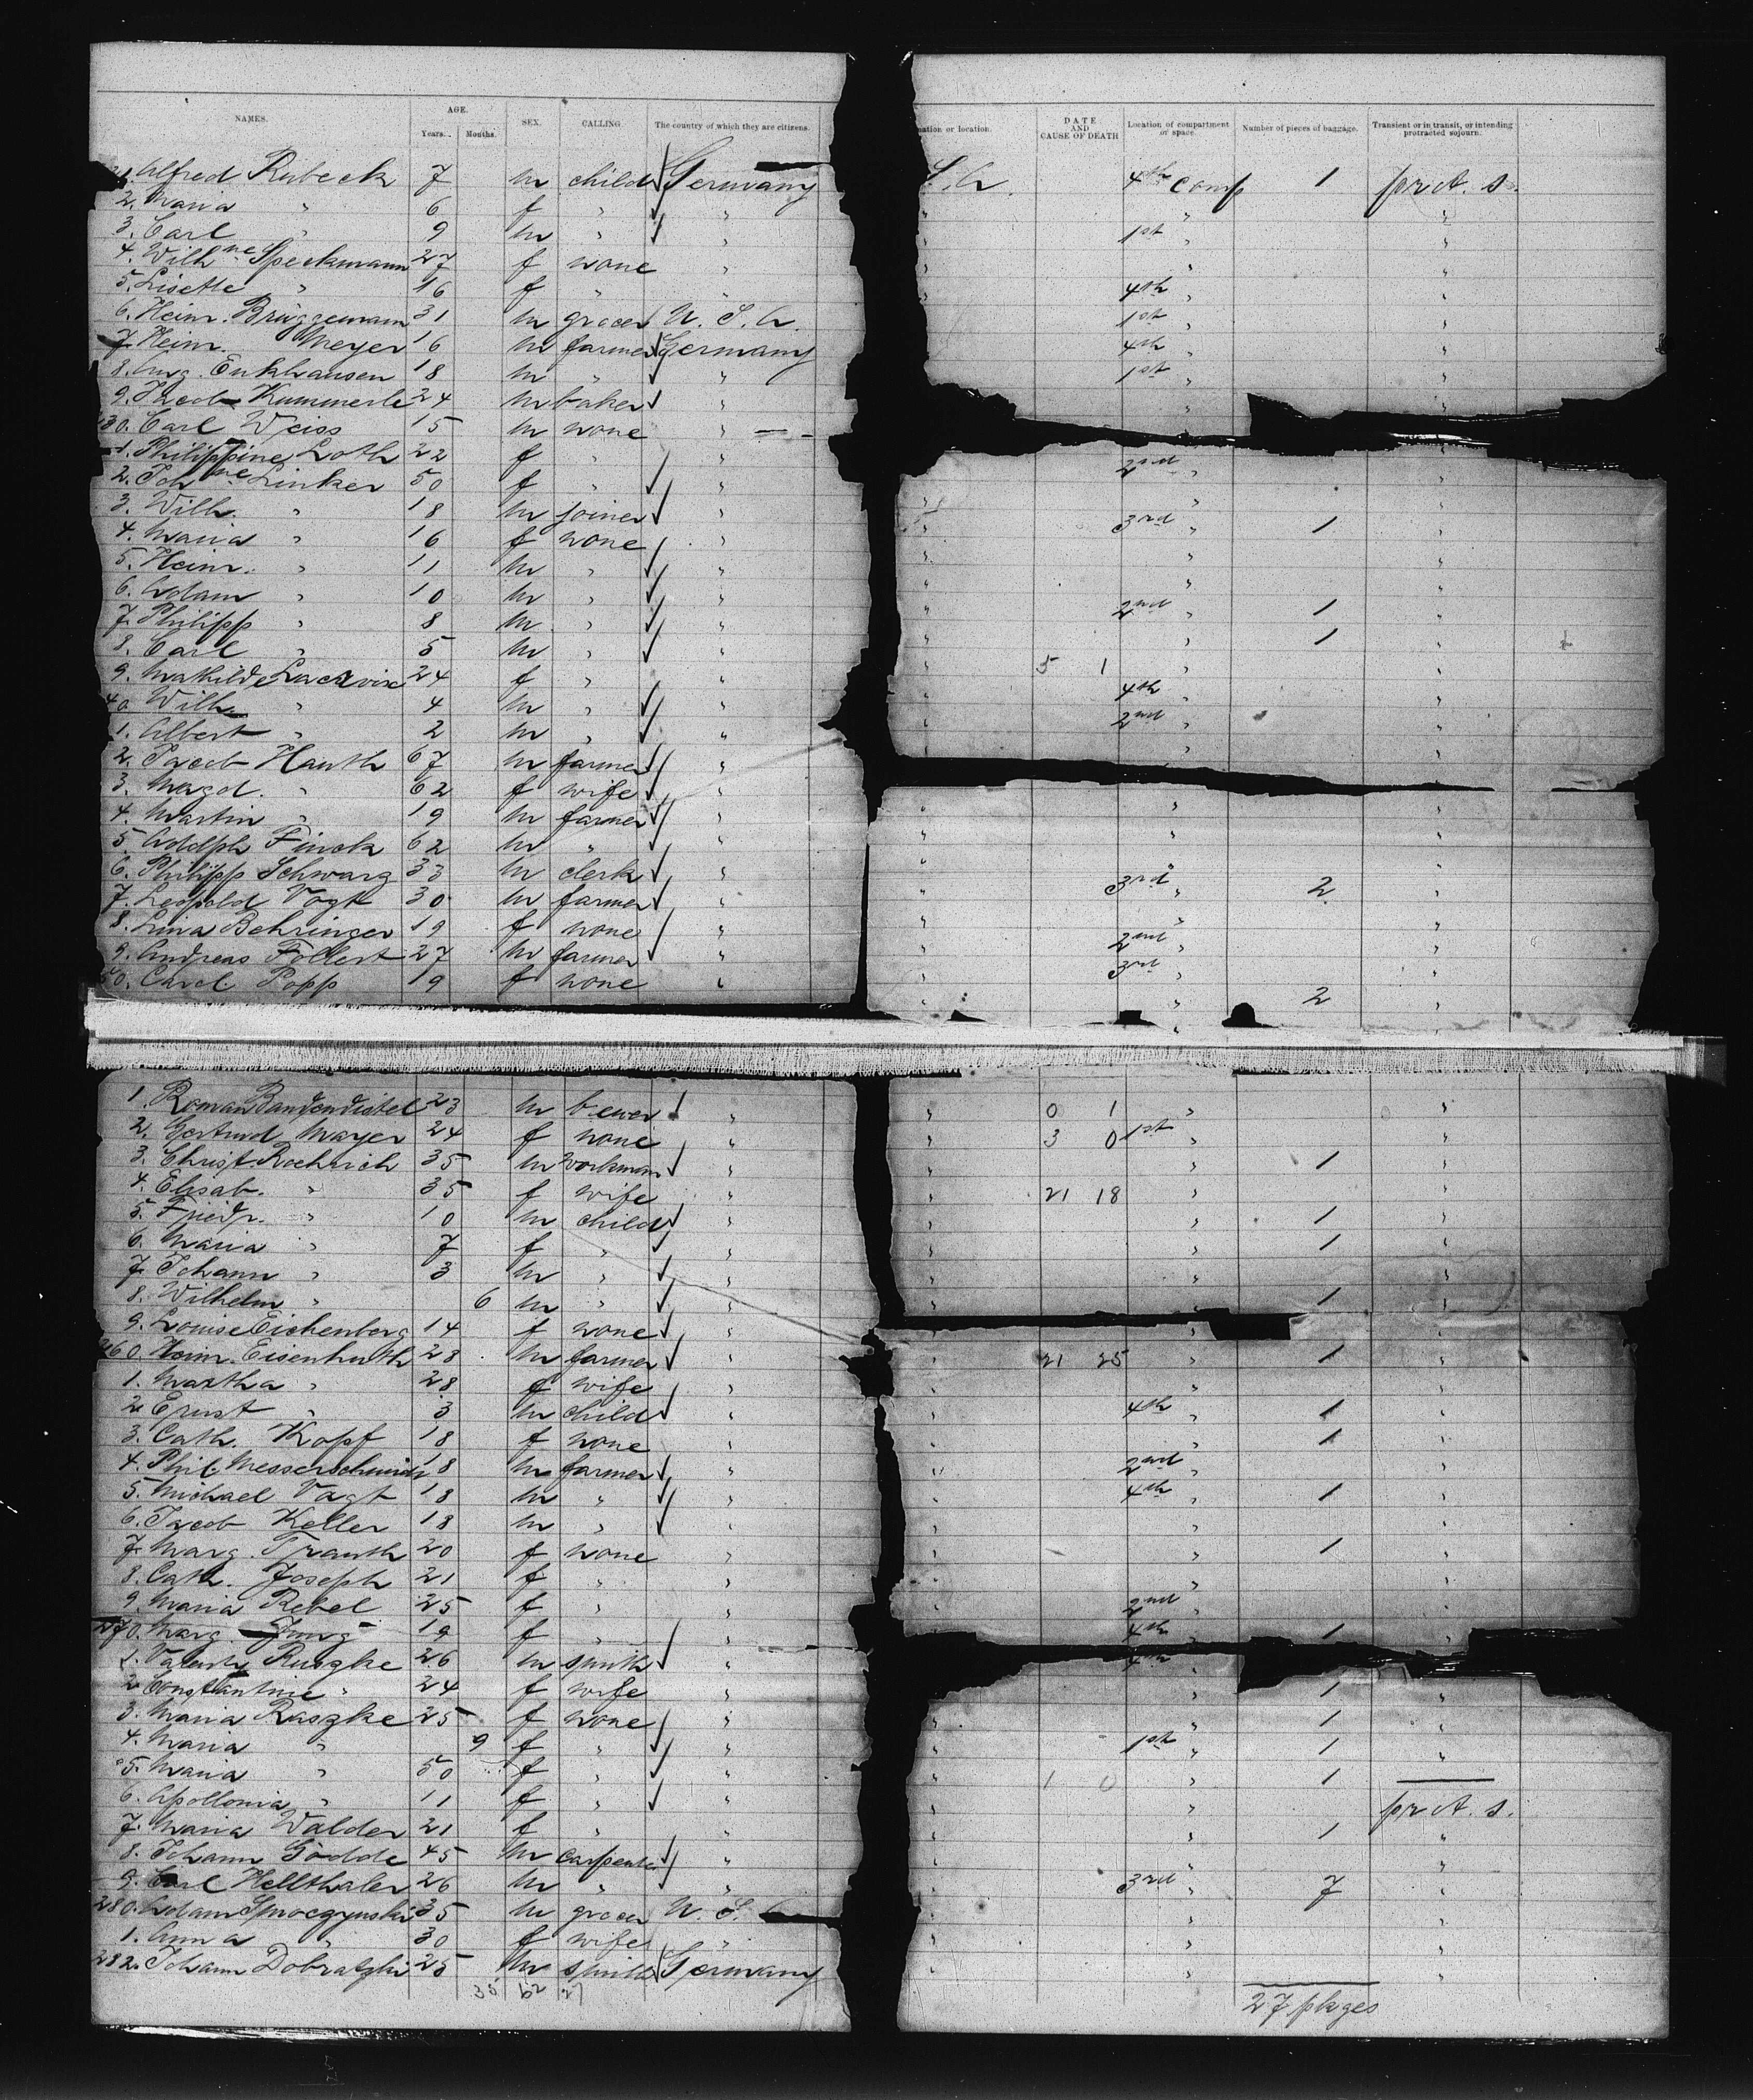 NAMES. AGE. Years. Months. SEX. CALLING. The country of which they are citizens.
1. Alfred Rubeck 7 m child Germany
2. Maria " 6 f " "
3. Carl " 9 m " "
4. Wilhne Speckmann 27 f none "
5. Lisette " 16 f " "
6. Heinr. Brüggemann 31 m grocer U. S. A.
7. Heinr. Meyer 16 m farmer Germany
8. Aug. Enkhausen 18 m " "
9. Jacob Kummerle 24 m baker "
230. Carl Weiss 15 m none "
1. Philippine Loth 22 f " "
2. Johne Linker 50 f " "
3. Wilh. " 18 m joiner "
4. Maria " 16 f none "
5. Heinr. " 11 m " "
6. Adam " 10 m " "
7. Philipp " 8 m " "
8. Carl " 5 m " "
9. Mathilde 24 f " "
40. Wilh. " 4 m " "
1. Albert " 2 m " "
2. Jacob Hauth 67 m farmer "
3. Magd. " 62 f wife "
4. Martin " 19 m farmer "
5. Adolph Finck 62 m " "
6. Philipp Schwarz 33 m clerk "
7. Leopold Vogt 30 m farmer "
8. Lina Behringer 19 f none "
9. Andreas Follert 27 m farmer "
50. Carol. Popp 19 f none "
1. Roman Bandendistel 23 m bewer "
2. Gertrud Mayer 24 f none "
3. Christ. Rochrich 35 m workman "
4. Elisab. " 35 f wife "
5. Friedr. " 10 m child "
6. Maria " 7 f " "
7. Johann " 3 m " "
8. Wilhelm " 6 m " "
9. Louise Eichenberg 14 f none "
260. Heinr. Eisenhuth 28 m farmer "
1. Martha " 28 f wife "
2. Ernst " 3 m child "
3. Cath. Kopf 18 f none "
4. Phil. Messerschmidt 18 m farmer "
5. Michael Vogt 18 m " "
6. Jacob Keller 18 m " "
7. Marg. Trauth 20 f none "
8. Cath. Joseph 21 f " "
9. Maria Rebel 25 f " "
270. Marg. Jung 19 f " "
1. Valentin Ruszke 26 m smith "
2. Constantine " 24 f wife "
3. Maria Raszke 25 f none "
4. Maria " 9 f " "
5. Maria " 50 f " "
6. Apollonia " 11 f " "
7. Maria Walder 21 f " "
8. Johann Gödde 45 m carpenter "
9. Carl Hellthaler 26 m " "
280. Adam 35 m grocer U. S.
1. Anna " 30 f wife "
282. Johann Dobratzki 25 m smith Germany
35 62 27
nation or location. DATE AND CAUSE OF DEATH Location of compartment or space. Number of pieces of baggage. Transient or in transit, or intending protracted sojourn.
4th comp 1 prct. s.
" " "
" 1st " "
" " "
" 4th " "
" 1st " "
" 4th " "
" 1st " "
" " "
2nd " "
" " "
" 3rd " 1 "
" " "
" " "
" 2nd " 1 "
" " 1 "
" 5 1 " "
" 4th " "
" 2nd " "
" " "
" " "
" " "
" "
" 3rd " 2 "
" " "
" 2nd " "
" 3rd " "
" " 2 "
" 0 1 " "
" 3 0 1st " "
" " 1 "
" 21 18 " "
" " 1 "
" " 1 "
" " "
" " 1 "
" " "
" 21 25 " 1 "
" " "
" 4th " 1 "
" " 1 "
" 2nd " "
" 4th " 1 "
" " "
" " 1 "
" " "
" 2nd " "
" 4th " 1 "
4th "
" " 1 "
" " 1 "
" 1st " 1 "
" 1 0 " 1
" " prct. s.
" " 1 "
" " "
" 3rd " 7 "
" " "
" " "
" " "
27 pkges